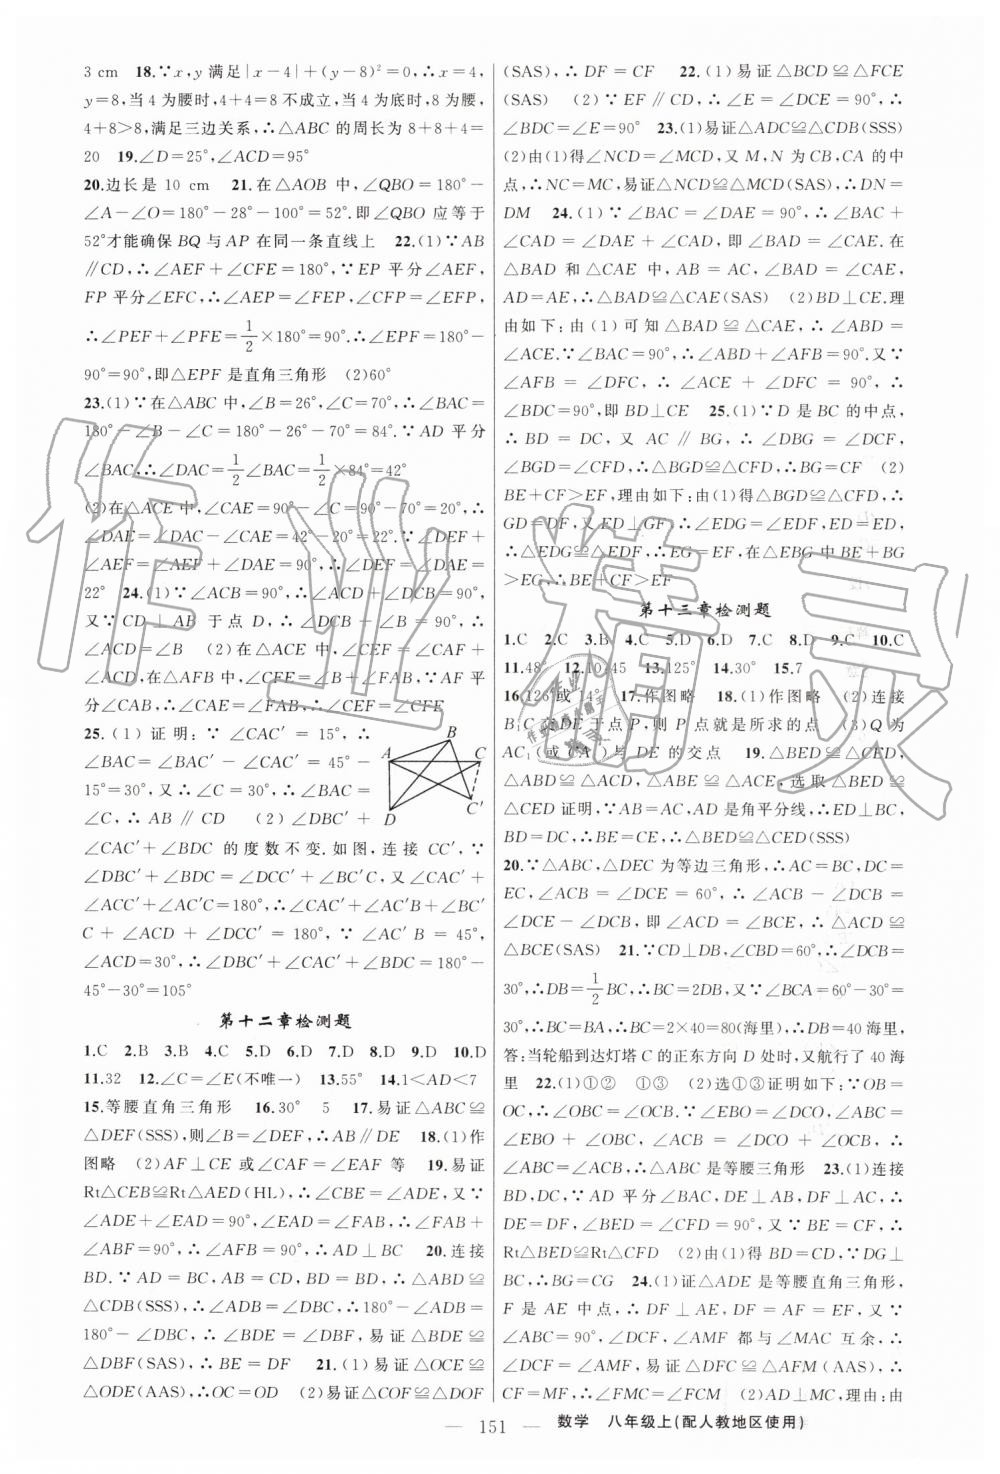 3 cm　18.∵x,y 满足|x−4|+(y−8)²=0,∴x=4,
y=8,当4为腰时,4+4=8不成立,当4为底时,8为腰,
4+8>8,满足三边关系,∴△ABC 的周长为8+8+4=
20　19.∠D=25°,∠ACD=95°
20.边长是 10 cm　21.在△AOB 中,∠QBO=180°−
∠A−∠O=180°−28°−100°=52°.即∠QBO 应等于
52°才能确保 BQ 与 AP 在同一条直线上　22.(1)∵AB
∥CD,∴∠AEF+∠CFE=180°,∵EP 平分∠AEF,
FP 平分∠EFC,∴∠AEP=∠FEP,∠CFP=∠EFP,
∴∠PEF+∠PFE=1/2×180°=90°.∴∠EPF=180°−
90°=90°,即△EPF 是直角三角形　(2)60°
23.(1)∵在△ABC 中,∠B=26°,∠C=70°,∴∠BAC=
180°−∠B−∠C=180°−26°−70°=84°.∵AD 平分
∠BAC,∴∠DAC=1/2∠BAC=1/2×84°=42°
(2)在△ACE 中,∠CAE=90°−∠C=90°−70°=20°,∴
∠DAE=∠DAC−∠CAE=42°−20°=22°.∵∠DEF+
∠AEF=∠AEF+∠DAE=90°,∴∠DEF=∠DAE=
22°　24.(1)∵∠ACB=90°,∴∠ACD+∠DCB=90°,
又∵CD⊥AB 于点 D,∴∠DCB+∠B=90°,∴
∠ACD=∠B　(2)在△ACE 中,∠CEA+∠CAE=
90°,在△AFB 中,∠CFE+∠FAB=90°,∵AF 平分
∠CAB,∴∠CAE=∠FAB,∴∠CEF=∠CFE
25.(1)证明:∵∠CAC′=15°,∴
∠BAC=∠BAC′−∠CAC′=45°−
15°=30°,又∵∠C=30°,∴∠BAC=
∠C,∴AB∥CD　(2)∠DBC′+
A
B
C
D
C′
∠CAC′+∠BDC 的度数不变.如图,连接 CC′,∵
∠DBC′+∠BDC=∠DCC′+∠BC′C,又∠CAC′+
∠ACC′+∠AC′C=180°,∴∠CAC′+∠AC′B+∠BC′
C+∠ACD+∠DCC′=180°,∵∠AC′B=45°,
∠ACD=30°,∴∠DBC′+∠CAC′+∠BDC=180°−
45°−30°=105°
第十二章检测题
1.C　2.B　3.B　4.C　5.D　6.D　7.D　8.D　9.D　10.D
11.32　12.∠C=∠E(不唯一)　13.55°　14.1<AD<7
15.等腰直角三角形　16.30°　5　17.易证△ABC≌
△DEF(SSS),则∠B=∠DEF,∴AB∥DE　18.(1)作
图略　(2)AF⊥CE 或∠CAF=∠EAF 等　19.易证
Rt△CEB≌Rt△AED(HL),∴∠CBE=∠ADE,又∵
∠ADE+∠EAD=90°,∠EAD=∠FAB,∴∠FAB+
∠ABF=90°,∴∠AFB=90°,∴AD⊥BC　20.连接
BD.∵AD=BC,AB=CD,BD=BD,∴△ABD≌
△CDB(SSS),∴∠ADB=∠DBC,∴180°−∠ADB=
180°−∠DBC,∴∠BDE=∠DBF,易证△BDE≌
△DBF(SAS),∴BE=DF　21.(1)易证△OCE≌
△ODE(AAS),∴OC=OD　(2)易证△COF≌△DOF
(SAS),∴DF=CF　22.(1)易证△BCD≌△FCE
(SAS)　(2)∵EF∥CD,∴∠E=∠DCE=90°,∴
∠BDC=∠E=90°　23.(1)易证△ADC≌△CDB(SSS)
(2)由(1)得∠NCD=∠MCD,又 M,N 为 CB,CA 的中
点,∴NC=MC,易证△NCD≌△MCD(SAS),∴DN=
DM　24.(1)∵∠BAC=∠DAE=90°,∴∠BAC+
∠CAD=∠DAE+∠CAD,即∠BAD=∠CAE.在
△BAD 和△CAE 中,AB=AC,∠BAD=∠CAE,
AD=AE,∴△BAD≌△CAE(SAS)　(2)BD⊥CE.理
由如下:由(1)可知△BAD≌△CAE,∴∠ABD=
∠ACE.∵∠BAC=90°,∴∠ABD+∠AFB=90°.又∵
∠AFB=∠DFC,∴∠ACE+∠DFC=90°,∴
∠BDC=90°,即 BD⊥CE　25.(1)∵D 是 BC 的中点,
∴BD=DC,又 AC∥BG,∴∠DBG=∠DCF,
∠BGD=∠CFD,∴△BGD≌△CFD,∴BG=CF　(2)
BE+CF>EF,理由如下:由(1)得△BGD≌△CFD,∴
GD=DF,又 ED⊥GF,∴∠EDG=∠EDF,ED=ED,
∴△EDG≌△EDF,∴EG=EF,在△EBG 中 BE+BG
>EG,∴BE+CF>EF
第十三章检测题
1.C　2.C　3.B　4.C　5.D　6.D　7.C　8.D　9.C　10.C
11.48°　12.10:45　13.125°　14.30°　15.7
16.126°或14°　17.作图略　18.(1)作图略　(2)连接
B₁C 交 DE 于点 P,则 P 点就是所求的点　(3)Q 为
AC₁(或 CA₁)与 DE 的交点　19.△BED≌△CED,
△ABD≌△ACD,△ABE≌△ACE,选取△BED≌
△CED 证明,∵AB=AC,AD 是角平分线,∴ED⊥BC,
BD=DC,∴BE=CE,∴△BED≌△CED(SSS)
20.∵△ABC,△DEC 为等边三角形,∴AC=BC,DC=
EC,∠ACB=∠DCE=60°,∴∠ACB−∠DCB=
∠DCE−∠DCB,即∠ACD=∠BCE,∴△ACD≌
△BCE(SAS)　21.∵CD⊥DB,∠CBD=60°,∴∠DCB=
30°,∴DB=1/2BC,∴BC=2DB,又∵∠BCA=60°−30°=
30°,∴BC=BA,∴BC=2×40=80(海里),∴DB=40海里,
答:当轮船到达灯塔 C 的正东方向 D 处时,又航行了 40 海
里　22.(1)①②　①③　(2)选①③证明如下:∵OB=
OC,∴∠OBC=∠OCB.∵∠EBO=∠DCO,∠ABC=
∠EBO+∠OBC,∠ACB=∠DCO+∠OCB,∴
∠ABC=∠ACB,∴△ABC 是等腰三角形　23.(1)连接
BD,DC,∵AD 平分∠BAC,DE⊥AB,DF⊥AC,∴
DE=DF,∠BED=∠CFD=90°,又∵BE=CF,∴
Rt△BED≌Rt△CFD　(2)由(1)得 BD=CD,∵DG⊥
BC,∴BG=CG　24.(1)证△ADE 是等腰直角三角形,
F 是 AE 中点,∴DF⊥AE,DF=AF=EF,又∵
∠ABC=90°,∠DCF,∠AMF 都与∠MAC 互余,∴
∠DCF=∠AMF,易证△DFC≌△AFM(AAS),∴
CF=MF,∴∠FMC=∠FCM　(2)AD⊥MC,理由:由
151
数学　八年级上(配人教地区使用)
作业精灵